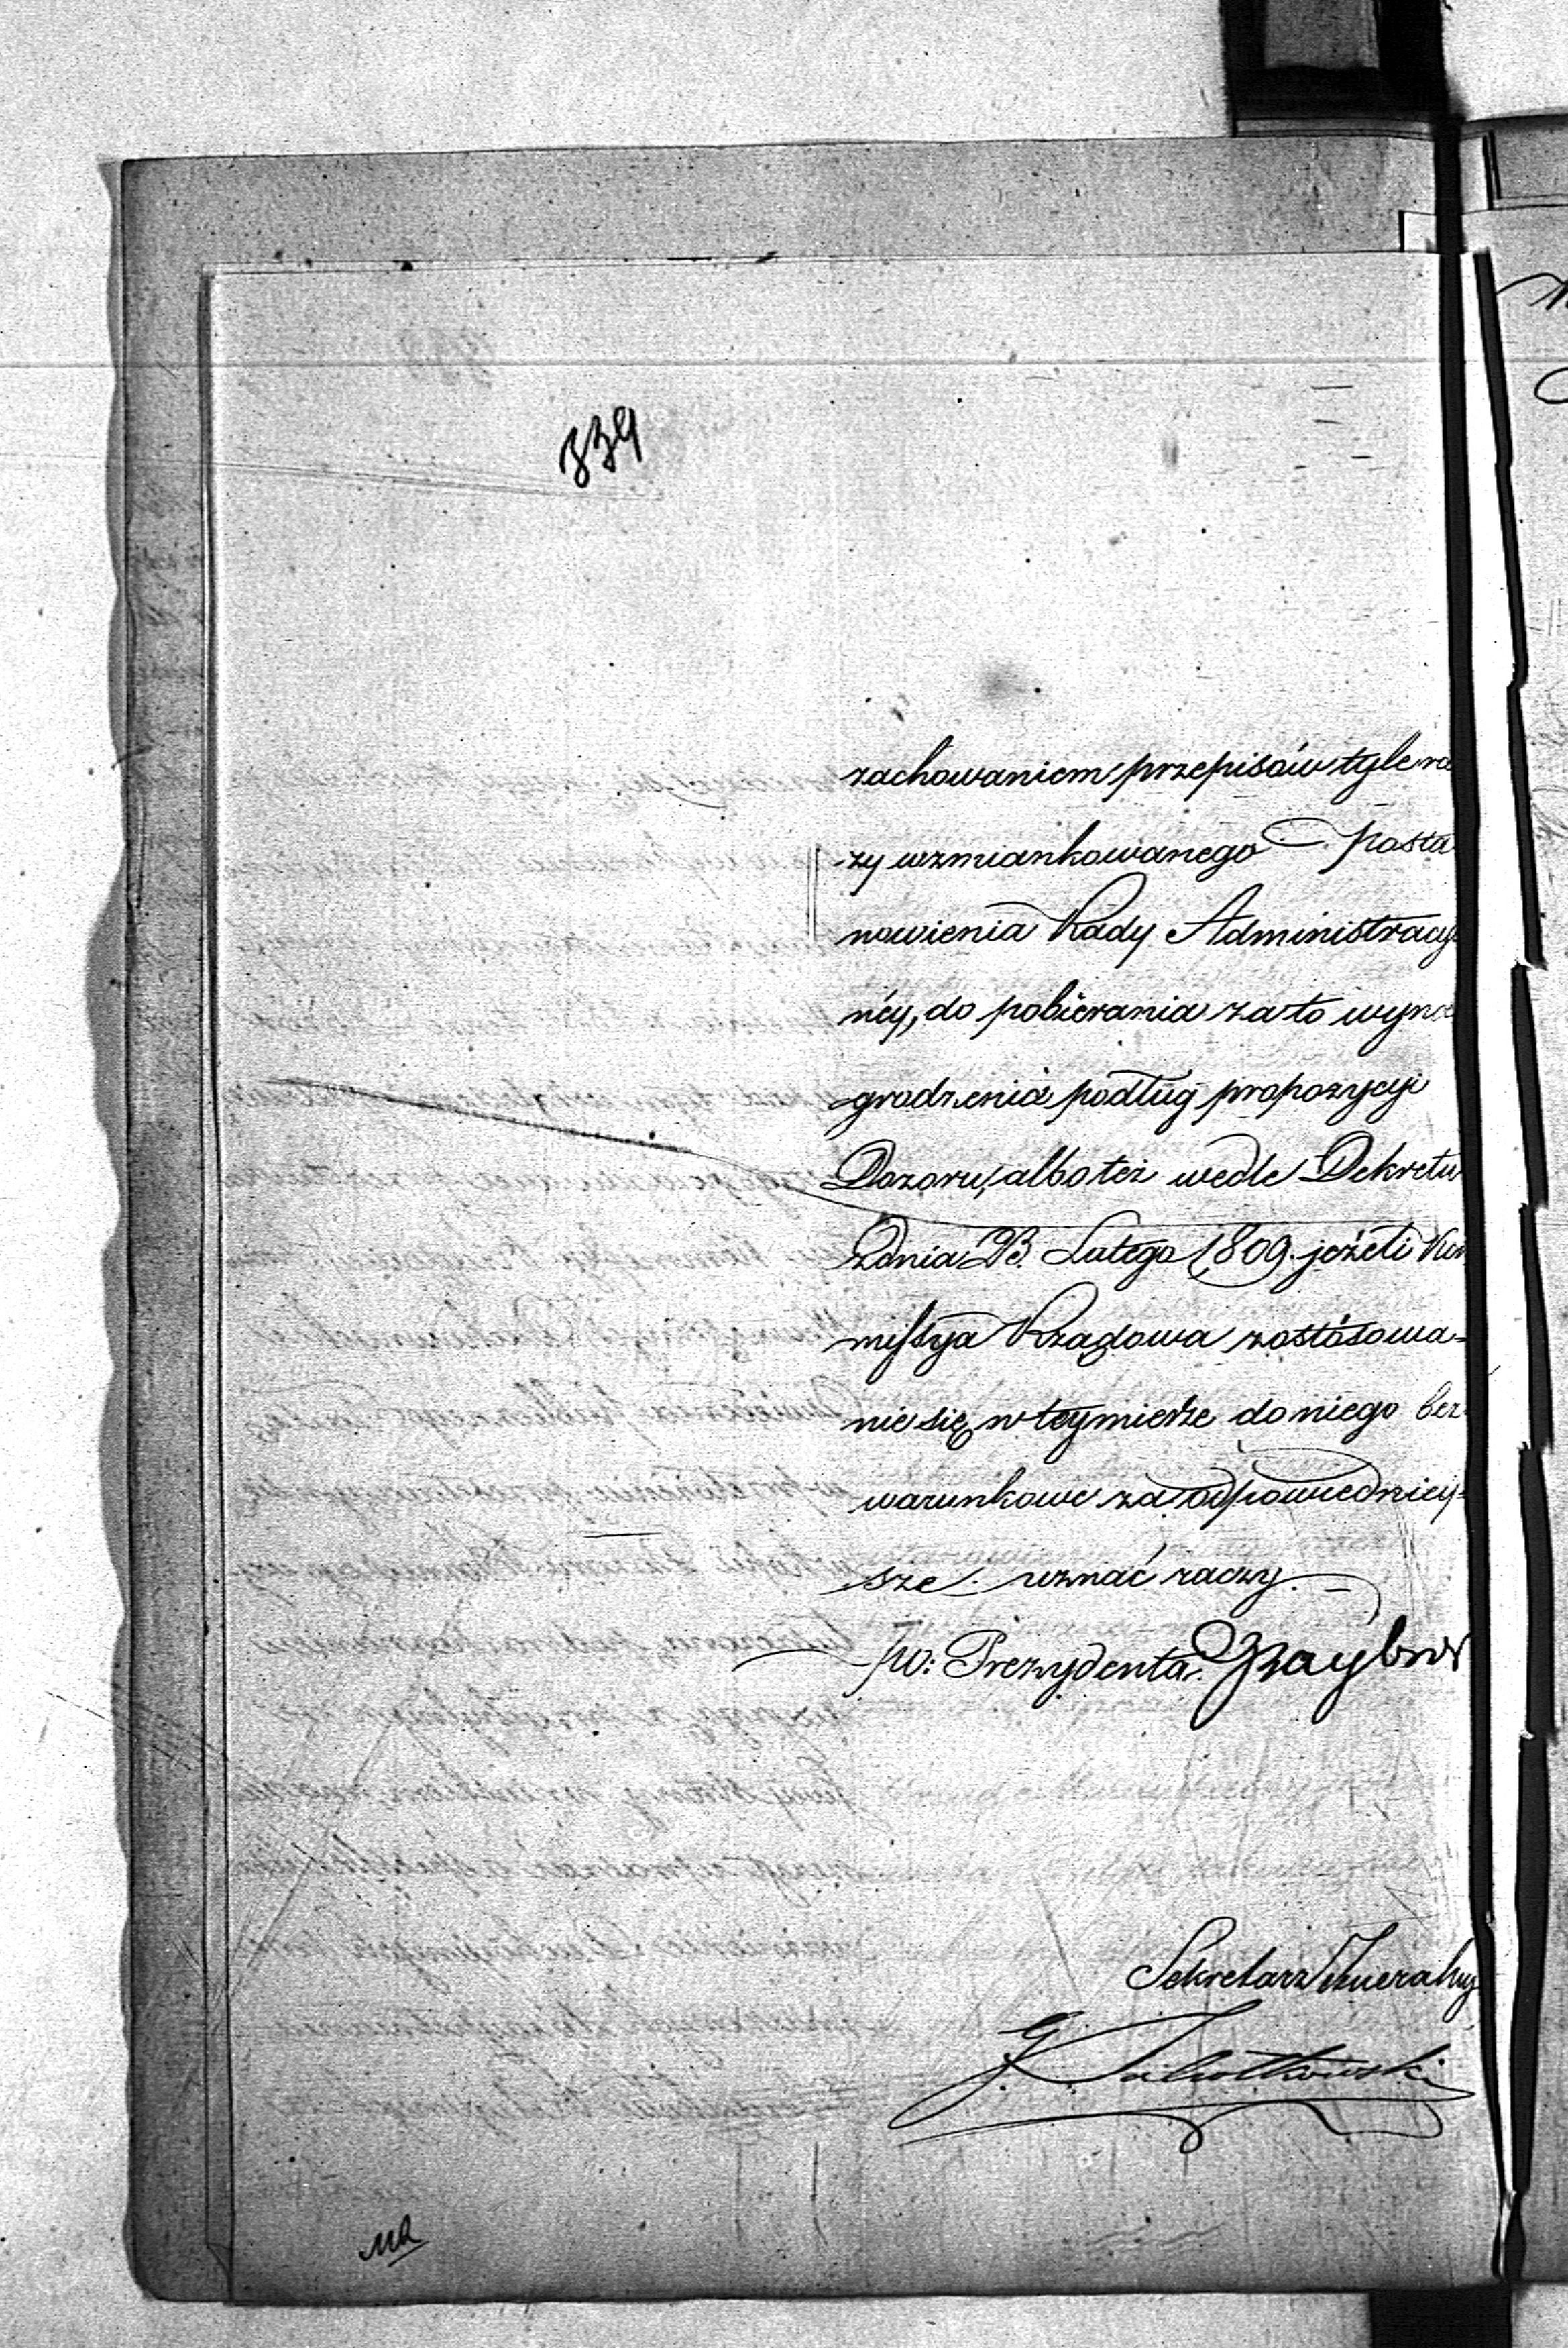 339
zachowaniem przepisów tyle ra
zy wzmiankowanego Posta
nowienia Rady Administracy
néy, do pobierania za to wyna
grodzenia podług propozycyi
Dozoru, albo też wedle Dekretu
z dnia 23. Lutego 1809. jeżeli Kom
missya Rządowa zastósowa=
nie się w téy mierze do niego bez
warunkowe za odpowiedniey=
sze uznać raczy.
w: Prezydenta
Sekretarz Jeneralny